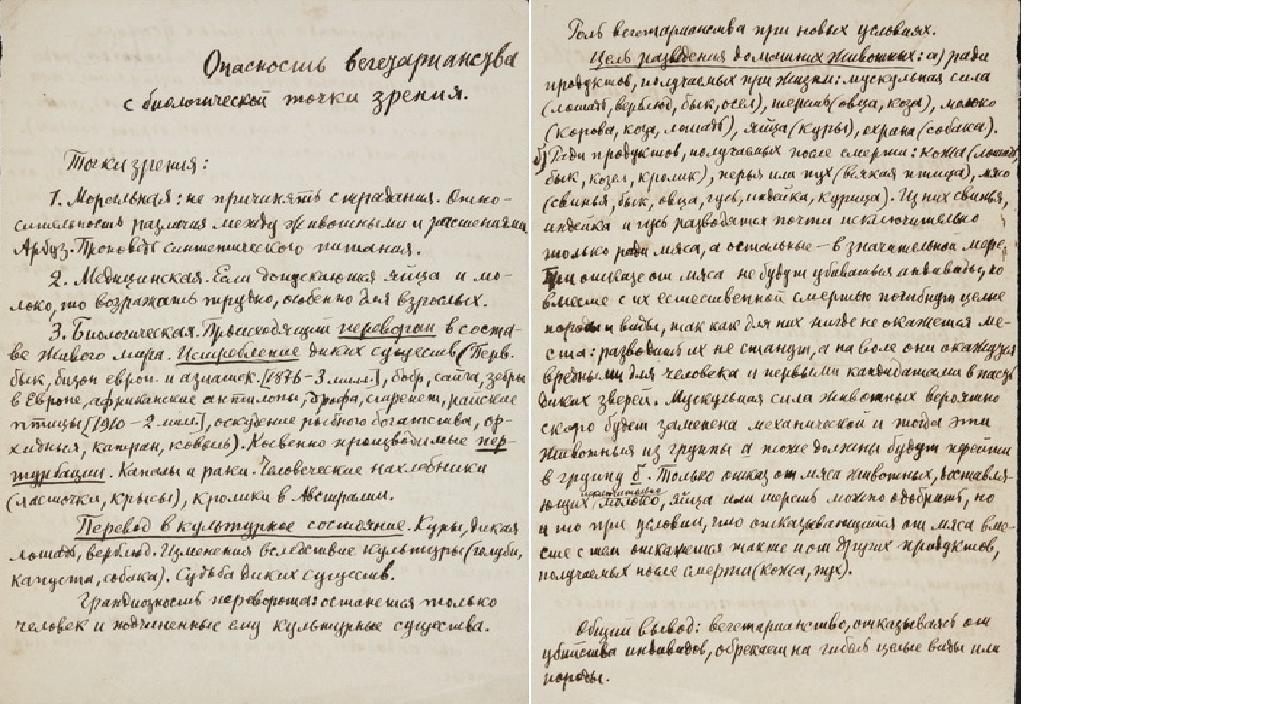 Опасность вегетарианства
с биологической точки зрения.
Точки зрения:
1. Моральная: не причинять страдания. Отно-
сительность различия между животными и растениями
Арбуз. Проповедь синтетического питания.
2. Медицинская. Если допускаются яйца и мо-
локо, то возражать трудно, особенно для взрослых.
3. Биологическая. Происходящий переворот в соста-
ве живого мира. Истребление диких существ (Перв.
бык, бизон европ. и азиатск. [1876 – 3 милл.], бобр, сайга, зебры
в Европе, африканские антилопы, дрофа, стрепет, райские
птицы [1910 – 2 милл.], оскудение рыбного богатства, ор-
хидныя, катран, ковыль). Косвенно производимые пер-
турбации. Каналы и раки. Человеческие нахлебники
(ласточки, крысы), кролики в Австралии.
Перевод в культурное состояние. Куры, дикая
лошадь, верблюд. Изменения вследствие культуры (голуби,
капуста, собака). Судьба диких существ.
Грандиозность переворота: останется только
человек и подчиненные ему культурные существа.
Роль вегетарианства при новых условиях.
Цель разведения домашних животных: а) ради
продуктов, получаемых при жизни: мускульная сила
(лошадь, верблюд, бык, осел), шерсть (овца, коза), молоко
(корова, коза, лошадь), яйца (куры), охрана (собака).
б) Ради продуктов, получаемых после смерти: кожа (лошадь,
бык, козел, кролик), перья или пух (всякая птица), мясо
(свинья, бык, овца, гусь, индейка, курица). Из них свинья,
индейка и гусь разводятся почти исключительно
только ради мяса, а остальные – в значительной мере.
При отказе от мяса не будут убиваться индивиды, но
вместе с их естественной смертью погибнут целые
породы и виды, так как для них нигде не окажется ме-
ста: разводить их не станут, а на воле они окажутся
вредными для человека и первыми кандидатами в из
диких зверей. Мускульная сила животных вероятно
скоро будет заменена механической и тогда эти
животные из группы а тоже должны будут перейти
в группу б. Только отказ от мяса животных, доставля-
ющих исключительно молоко, яйца или шерсть можно одобрить, но
и то при условии, что отказывающийся от мяса вме-
сте с тем откажется также и от других продуктов,
получаемых после смерти (кожа, пух).
Общий вывод: вегетарианство, отказываясь от
убийства индивидов, обрекает на гибель целые виды или
породы.